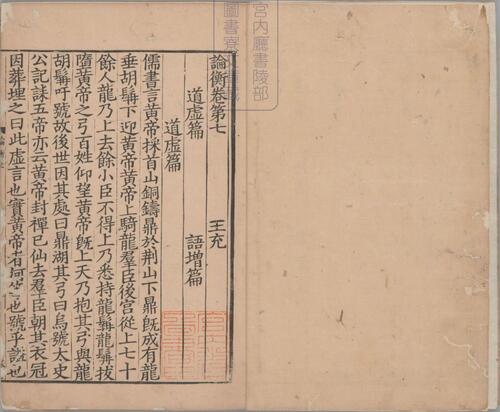 宮内廳書陵部
論衡卷第七
王充
道虛篇
語增篇
道虛篇
儒書言黃帝採首山銅鑄鼎於荊山下鼎旣成有龍
垂胡髯下迎黃帝黃帝上騎龍羣臣後宮從上七十
餘人龍乃上去餘小臣不得上乃悉持龍髯龍髯拔
墮黃帝之弓百姓仰望黃帝旣上天乃抱其弓與龍
胡髯吁號故後世因其處曰鼎湖其弓曰烏號太史
公記誄五帝亦云黃帝封禪已仙去羣臣朝其衣冠
因葬埋之曰此虛言也實黃帝者何等也號乎謚也